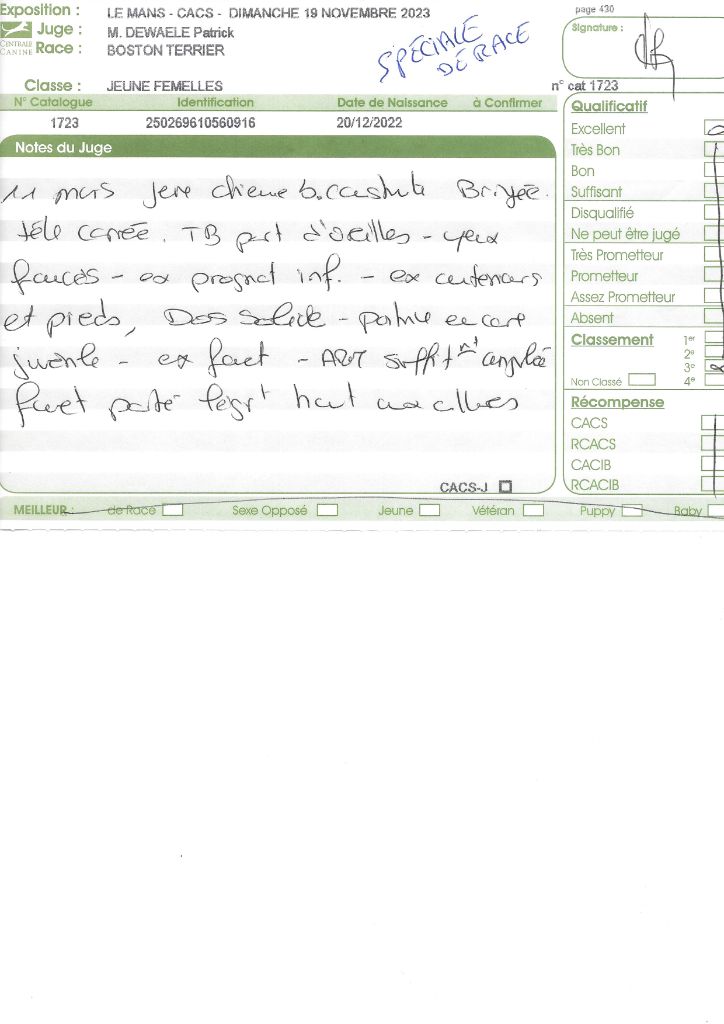 Exposition : LE MANS - CACS - DIMANCHE 19 NOVEMBRE 2023
CENTRALE CANINE
Juge : M. DEWAELE Patrick
Race : BOSTON TERRIER
SPÉCIALE DE RACE
page 430
Signature :
Classe : JEUNE FEMELLES
n° cat 1723
N° Catalogue Identification Date de Naissance à Confirmer
1723 250269610560916 20/12/2022
Notes du Juge
11 mois jeune chienne b. constituée Bringée.
tête carrée. TB port d'oreilles - yeux
foncés - ex prognat inf. - ex antérieurs
et pieds, Dos solide - poitrine encore
juvénile - ex fouet - ARR suffist angulé
fouet porté légrt haut aux allures
CACS-J
Qualificatif
Excellent
Très Bon
Bon
Suffisant
Disqualifié
Ne peut être jugé
Très Prometteur
Prometteur
Assez Prometteur
Absent
Classement 1er
2e
3e
Non Classé 4e
Récompense
CACS
RCACS
CACIB
RCACIB
MEILLEUR : de Race Sexe Opposé Jeune Vétéran Puppy Baby